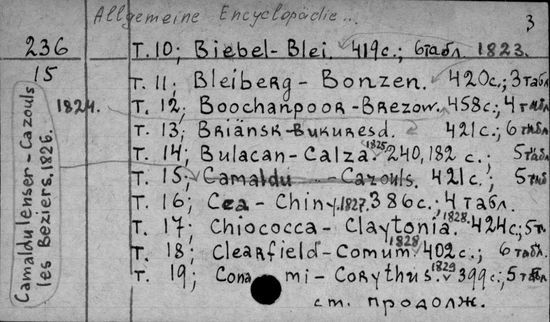 Allgemeine Encyclopädie...
3
236
15
Т. 10; Biebel-Blei. 419с.; 6табл. 1823.
Т. 11; Bleiberg-Bonzen. 420с.; 3табл
1824.
Т. 12; Boochanpoor-Brezow. 458с.; 4табл
Т. 13; Briänsk-Bukuresd. 421с.; 6табл
Т. 14; Bulacan-Calza. 1825. 240,182 с.; 5табл
Т. 15; Camaldu - Cazouls. 421с.; 5табл
Т. 16; Cea-Chiny. 1827. 386с. 4табл.
Т. 17; Chiococca-Claytonia. 1828. 424с.; 5т.
Т. 18; Clearfield-Comum. 1828. 402с.; 6табл.
Т. 19; Cona mi-Corythus. 1829 399с.; 5табл
см. продолж.
Camaldulenser-Cazouls
les Beziers. 1826.